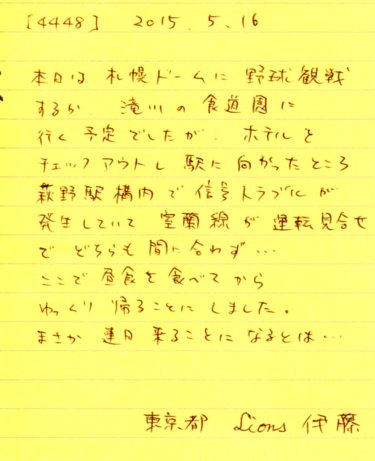 [4448] 2015.5.16
本日は札幌ドームに野球観戦
するか 滝川の食道園に
行く予定でしたが、ホテルを
チェックアウトし駅に向かったところ
萩野駅構内で信号トラブルが
発生していて室蘭線が運転見合せ
でどちらも間に合わず…
ここで昼食を食べてから
ゆっくり帰ることにしました。
まさか連日来ることになるとは…
東京都 Lions 伊藤